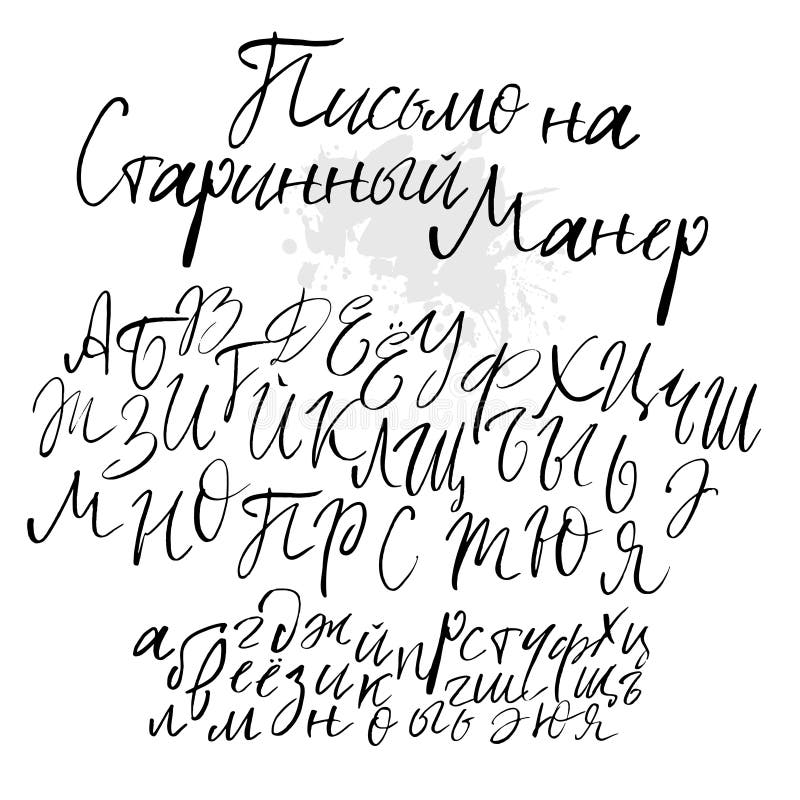 Письмо на
Старинный Манер
А Б В Г Д Е Ё У Ф Х Ц Ч Ш
Ж З И Й К Л Щ Ъ Ы Ь Э
М Н О П Р С Т Ю Я
а б в г д ж й п р с т у ф х ц
е ё з и к ч ш щ ъ
л м н о ы ь э ю я
dreamstime